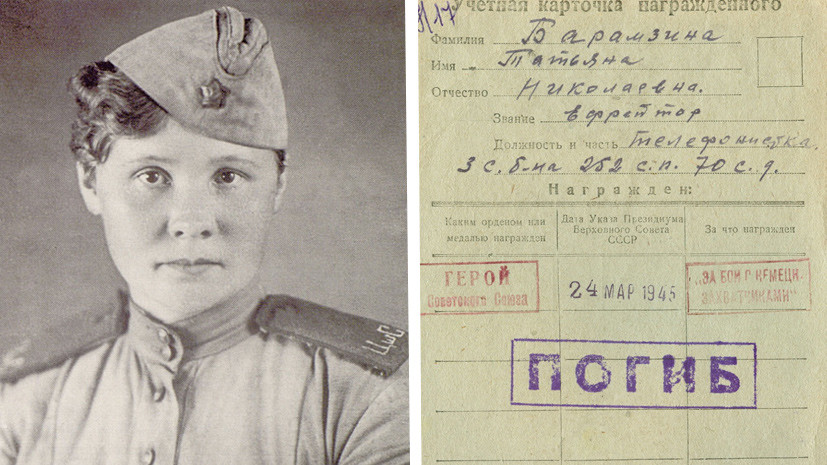 ЦШС
8/17
Учетная карточка награжденного
Фамилия Барамзина
Имя Татьяна
Отчество Николаевна.
Звание ефрейтор
Должность и часть телефонистка.
3 с.б-на 252 с.п. 70 с.д.
Награжден:
Каким орденом или медалью награжден
Дата Указа Президиума Верховного Совета СССР
За что награжден
ГЕРОЙ
Советского Союза
24 МАР 1945
"ЗА БОИ С НЕМЕЦК.
ЗАХВАТЧИКАМИ"
ПОГИБ